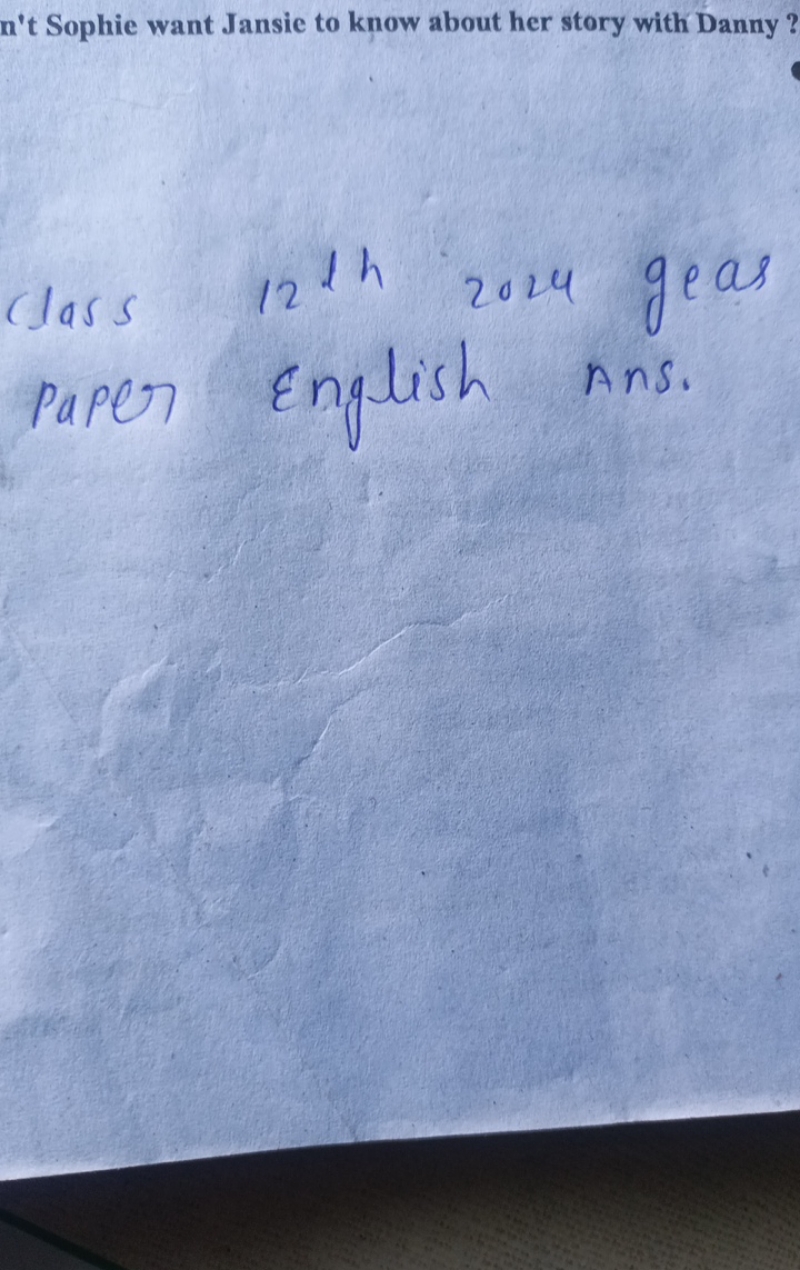 n't Sophie want Jansie to know about her story with Danny ?
Class 12th 2024 geas
Paper English Ans.